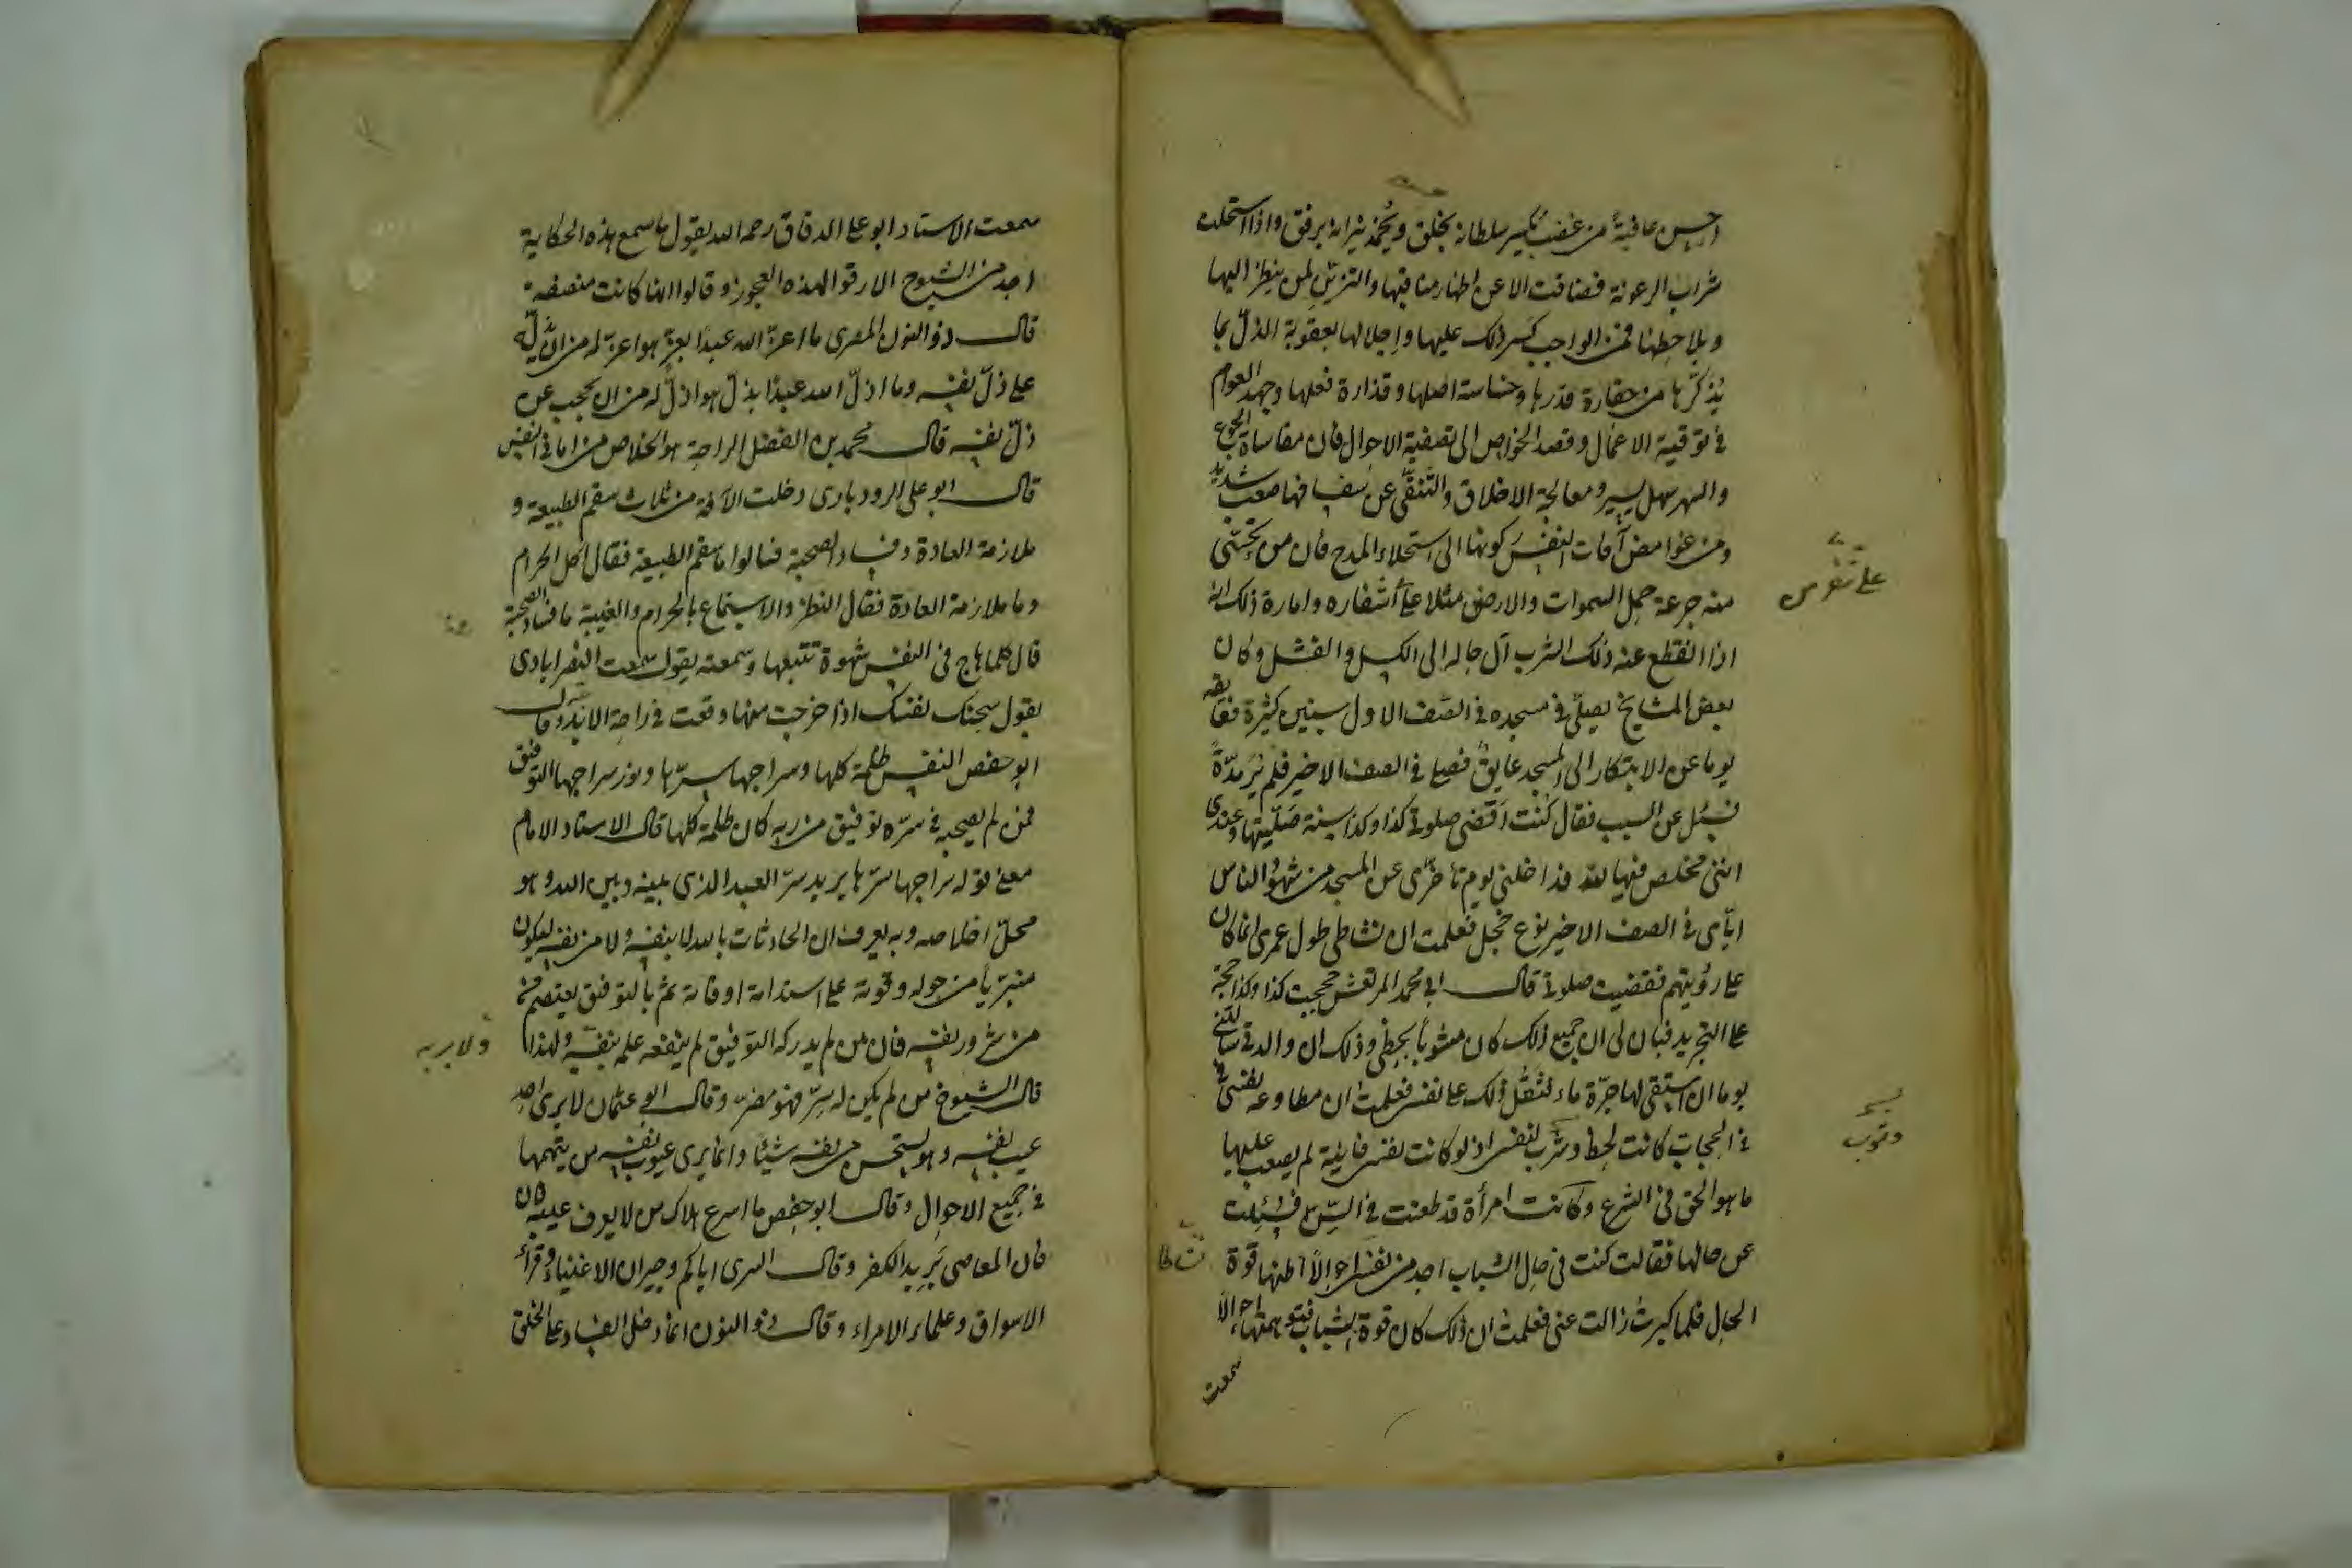 احسن عاقبة من غضب يكسر سلطانه بخلق ويخمد نيرانه برفق واذا استحلت
شراب الرعونة فضاقت الا عن اظهار مناقبها والتزين لمن ينظر اليها
ويلاحظها فمن الواجب كسر ذلك عليها واحلالها بعقوبة الذل بما
يذكرها من حقارة قدرها وخساسة اصلها وقذارة فعلها وجهد العوام
في توفية الاعمال وقصد الخواص الى تصفية الاحوال فان مقاساة الجوع
والسهر سهل يسير ومعالجة الاخلاق والتنقي عن سفسافها صعب شديد
ومن غوامض آفات النفس ركونها الى استحلاء المدح فان من تحسّى
منه جرعة حمل السموات والارض مثلا على أشفاره وامارة ذلك انه
اذا انقطع عنه ذلك الشرب آل حاله الى الكسل والفشل وكان
بعض المشايخ يصلّي في مسجده في الصف الاول سنين كثيرة فعاقه
يوما عن الابتكار الى المسجد عايق فصلى في الصف الاخير فلم ير مدّة
فسئل عن السبب فقال كنت اقضي صلوة كذا وكذا سنة صلّيتها وعندي
انني مخلص فيها لله فداخلني يوم تأخّري عن المسجد من شهود الناس
ايّاي في الصف الاخير نوع خجل فعلمت ان نشاطي طول عمري انما كان
على رؤيتهم فقضيت صلوتي قال ابي محمد المرتعش حججت كذا وكذا حجة
على التجريد فبان لي ان جميع ذلك كان مشوبا بحظي وذلك ان والدتي سألتني
يوما ان استقي لها جرّة ماء فثقل ذلك على نفسي فعلمت ان مطاوعة نفسي
في الحجات كانت لحظ وشرب لنفسي اذ لو كانت نفسي فانية لم يصعب عليها
ما هو الحق في الشرع وكانت امرأة قد طعنت في السن فسئلت
عن حالها فقالت كنت في حال الشباب اجد من نفسي احوالاً اظنها قوة
الحال فلما كبرت زالت عني فعلمت ان ذلك كان قوة الشباب فتوهمتها احوالا
سمعت
سمعت الاستاد ابو على الدقاق رحمه الله يقول ما سمع هذه الحكاية
احد من الشيوخ الا رقوا لهذه العجوز وقالوا انها كانت منصفة
قال ذو النون المصري ما اعزّ الله عبدا بعزّ هو اعزّ له من ان يدلّه
على ذلّ نفسه وما اذلّ الله عبدًا بذلّ هو اذلّ له من ان يحجب عن
ذلّ نفسه قال محمد بن الفضل الراحة هو الخلاص من اماني النفس
قال ابو على الرودباري دخلت الآفة من ثلاث سقم الطبيعة و
ملازمة العادة وفساد الصحبة فسالوا ما سقم الطبيعة فقال اكل الحرام
وما ملازمة العادة فقال النظر والاستماع بالحرام والغيبة ما فساد الصحبة
قال كلما هاج في النفس شهوة تتبعها وسمعته يقول سمعت النصرابادي
يقول سجنك نفسك اذا خرجت منها وقعت في راحة الابد وقال
ابو حفص النفس ظلمة كلها وسراجها سرّها ونور سراجها التوفيق
فمن لم يصحبه في سرّه توفيق من ربه كان ظلمة كلها قال الاستاد الامام
معنى قوله سراجها سرّها يريد سرّ العبد الذي بينه وبين الله وهو
محلّ اخلاصه وبه يعرف ان الحادثات بالله لا بنفسه ولا من نفسه ليكون
متبرّيا من حوله وقوته على استدامة اوقاته ثم بالتوفيق يعتصم
من شرور نفسه فان من لم يدركه التوفيق لم ينفعه علمه بنفسه ولهذا
ولا بربه
قال الشيوخ من لم يكن له سرّ فهو مصرّ وقال ابو عثمان لا يرى احد
عيب نفسه وهو يستحسن من نفسه شيئًا وانما يرى عيوب نفسه من يتهمها
في جميع الاحوال وقال ابو حفص ما اسرع هلاك من لا يعرف عيبه
فان المعاصي بريد الكفر وقال السري اياكم وجيران الاغنياء وقراء
الاسواق وعلماء الامراء وقال ذو النون انما دخل الفساد على الخلق